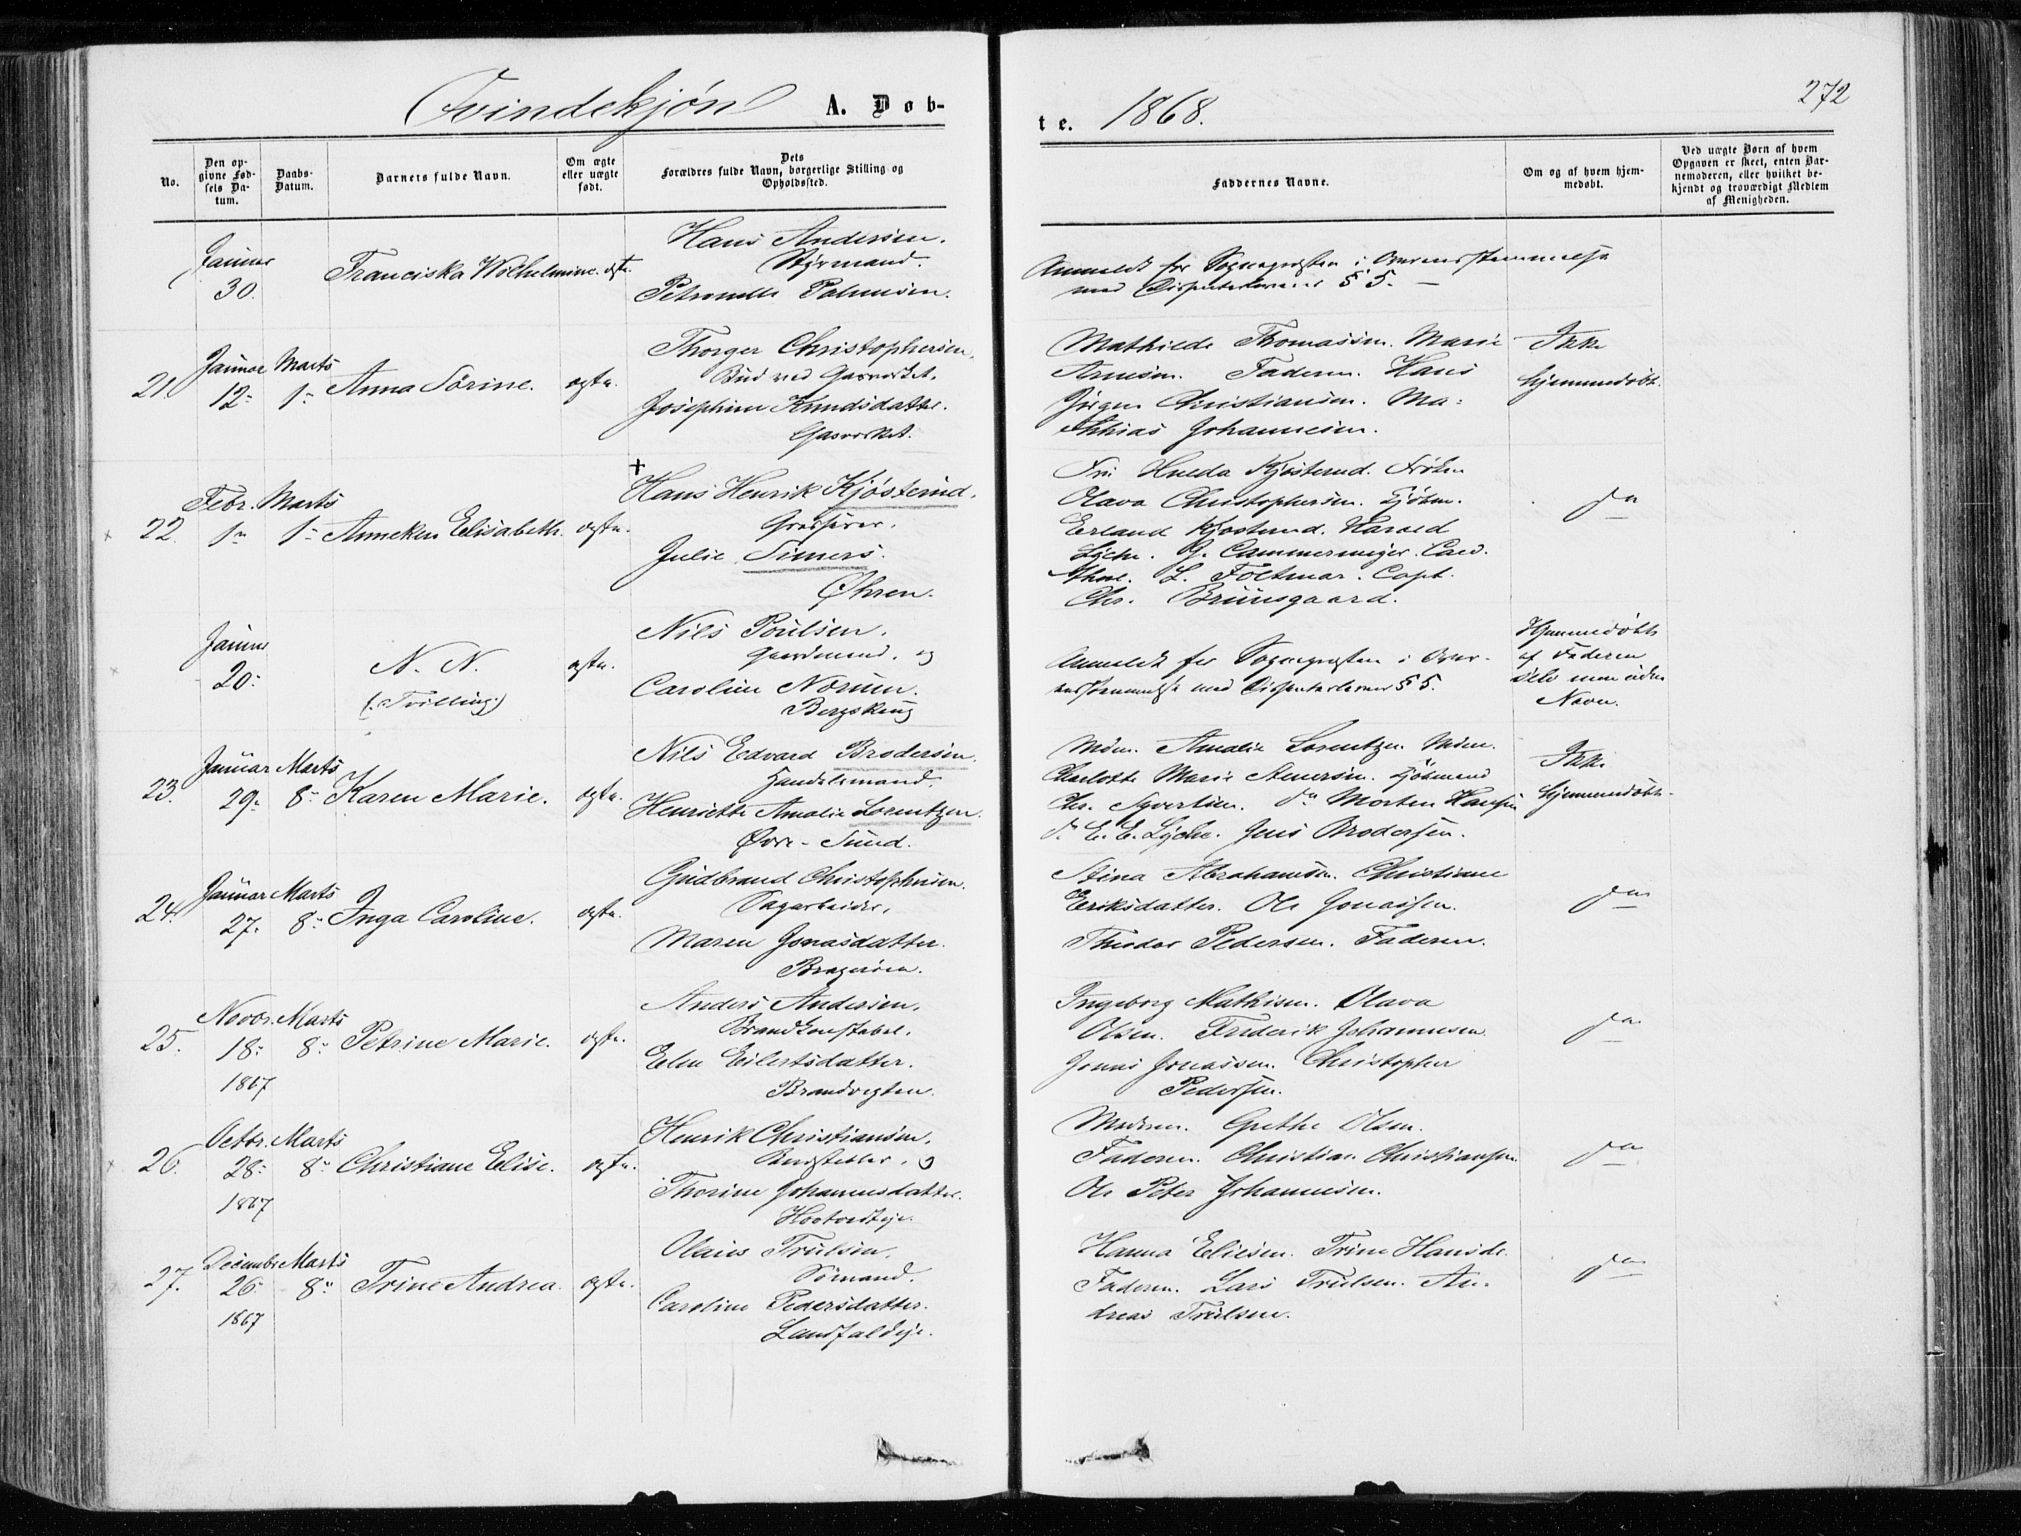 Qvindekjøn A. Døb-
te. 1868.
272
No.
Den op-
givne Fød-
sels Da-
tum.
Daabs-
Datum.
Barnets fulde Navn.
Om ægte
eller uægte
født.
Dets
Forældres fulde Navn, borgerlige Stilling og
Opholdssted.
Faddernes Navne.
Om og af hvem hjem-
medøbt.
Ved uægte Børn af hvem
Opgaven er skeet, enten Bar-
nemoderen, eller hvilket be-
kjendt og troværdigt Medlem
af Menigheden.
Januar
30.
Franciska Wilhelmine. ægte.
Hans Andersen.
Styrmand.
Petronelle Palmesen.
Anmeldt for Sognepresten i Overensstemmelse
med Dissenterloven § 5.
21.
Januar
12.
Marts
1.
Anna Sorine.
ægte.
Thorger Christophersen,
Bud ved Gasværket.
Josephine Knudsdatter.
Gasværket.
Mathilde Thomassen. Marie
Arnesen. Faderen. Hans
Jørgen Christiansen. Ma-
thias Johannesen.
Ikke
hjemmedøbt.
22.
Febr.
1.
Marts
1.
Anneken Elisabeth.
ægte.
+
Hans Henrik Kjøsterud,
Grosserer.
Julie Simers.
Øhren.
Fru Hulda Kjøsterud. Frøken
Olava Christophersen. Kjøbm.
Erland Kjøsterud. Harald
Lyche. G. Cammermeyer. Cand.
L. Foltmar. Capt.
Chr. Bruusgaard.
do
Januar
20.
N. N.
(Tvilling)
ægte.
Nils Poulsen.
Gaardmand. og
Caroline Norum.
Bergskoug
Anmeldt for Sognepresten i Over-
ensstemmelse med Dissenterloven § 5.
Hjemmedøbt
af Faderen
selv men uden
Navn.
23.
Januar
29.
Marts
8.
Karen Marie.
ægte.
Nils Edvard Brodersen.
Handelsmand.
Henriette Amalie Lorentzen.
Øvre-Sund.
Mdm. Amalie Lorentzen. Mdm.
Charlotte Marie Stenersen. Kjøbmand
Chr. Syvertsen. do Morten Hansen
do E. E. Lyche. Jens Brodersen.
Ikke
hjemmedøbt.
24.
Januar
27.
Marts
8.
Inga Caroline.
ægte.
Gudbrand Christophersen.
Sagarbeider.
Maren Jonasdatter.
Bragerøen.
Stina Abrahamsen. Christiane
Eriksdatter. Ole Jonassen.
Theodor Pedersen. Faderen.
do
25.
Novbr.
18.
1867
Marts
8.
Petrine Marie.
ægte.
Anders Andersen.
Brandkonstabel.
Elen Eilertsdatter.
Brandvagten.
Ingeborg Mathisen. Olava
Olsen. Frederik Johannesen
Jonas Jonassen. Christopher
Pedersen.
do
26.
Octbr.
28.
1867
Marts
8.
Christiane Elise.
ægte.
Henrik Christiansen,
og
Thorine Johannesdatter.
Moderen. Grethe Olsen.
Faderen. Christian Christiansen.
Ole Peter Johannesen.
do
27.
December
26.
1867
Marts
8.
Trine Andrea.
ægte.
Olaus Trulsen.
Sømand.
Caroline Pedersdatter.
Landfaldeje.
Hanna Eliesen. Trine Hansdr.
Faderen. Lars Trulsen. An-
dreas Trulsen.
do